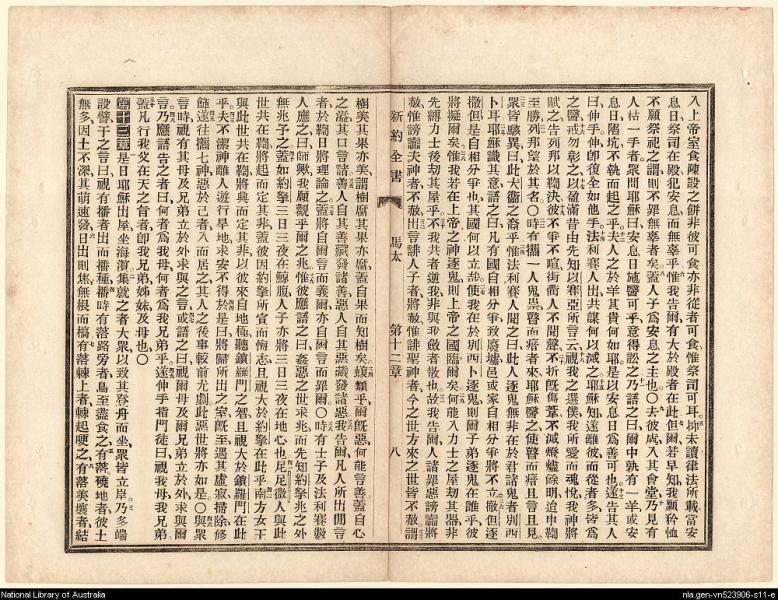 入上帝室食陳設之餅非彼可食亦非從者可食惟祭司可耳抑未讀律法所載當安
息日祭司在殿犯安息而無辜乎惟我告爾有大於殿者在此但爾若早知我願矜恤
不願祭祀之謂則不罪無辜者矣蓋人子為安息之主也〇去彼處入其會堂乃見有
人枯一手者眾問耶穌曰安息日施醫可乎意得訟之乃語之曰爾中孰有一羊或安
息日陷坑不執而起之乎夫人之於羊其貴何如耶是以安息日為善可也遂告其人
曰伸手伸即復全如他手法利賽人出共謀何以滅之耶穌知遂離彼而從者多皆為
之醫戒勿彰之以盈滿昔由先知以賽亞所言云視我之選僕我所愛而魂悅我神將
賦之告列邦以鞫決彼不爭不喧街衢人不聞聲不折既傷葦不滅燃爐餘明迨申鞫
至勝列邦望於其名〇時有攜一人鬼祟瞽而瘖者來耶穌醫之使瞽而瘖且言且見
眾皆駭異曰此大衞之裔乎惟法利賽人聞之曰此人逐鬼無非在於君諸鬼者別西
卜耳耶穌識其意語之曰凡有國自相分爭致廢墟邑或家自相分爭將不立撒但逐
撒但是自相分爭也其國何以立哉使我在於別西卜逐鬼則爾子弟逐鬼在誰乎彼
將擬爾矣惟我若在上帝之神逐鬼則上帝之國臨爾矣何能入力士之屋劫其器非
先縛力士後劫其屋乎不我共者逆我非與我斂者散也故我告爾人諸罪惡謗讟將
赦惟謗讟夫神者不赦出言誹人子者將赦惟誹聖神者今之世方來之世皆不赦謂
新約全書
馬太
第十二章
八
樹美其果亦美謂樹腐其果亦腐蓋自果而知樹矣蝮類乎爾既惡何能言善蓋自心
之溢其口言諸善人自其善藏發諸善惡人自其惡藏發諸惡我告爾凡人所出閒言
者於鞫日將理論之蓋將自爾言而義爾亦自爾言而罪爾〇時有士子及法利賽數
人應之曰師歟我願觀乎爾之兆惟彼應語之曰姦惡之世求兆而先知約拏兆之外
無兆予之蓋如約拏三日三夜在鯨腹人子亦將三日三夜在地心也尼尼微人與此
世共在鞫將起而定其非蓋彼因約拏所宣而悔志且視大於約拏在此乎南方女王
與此世共在鞫將興而定其非以彼來自地極聽鎖羅門之智且視大於鎖羅門在此
乎夫不潔神離人遊行旱地求安不得於是曰將歸所出之室既至遇其虛寂掃除修
飾遂往攜七神惡於己者入而居之其人之後事較前尤劇此惡世將亦如是〇與眾
言時視有其母及兄弟立於外求與之言或語之曰視爾母及爾兄弟立於外求與爾
言乃應語告之者曰何者為我母何者為我兄弟乎遂伸手指門徒曰視我母我兄弟
蓋凡行我父在天之旨者卽我兄弟姊妹及母也〇
第十三章是日耶穌出屋坐海濱集就之者大眾以致其登舟而坐眾皆立岸乃多端
設譬于之言曰視有播者出而播種播時有落路旁者鳥至盡食之有落磽地者彼土
無多因土不深其萌速發日出則焦無根而槁有落棘上者棘起哽之有落美壤者結
National Library of Australia
nla.gen-vn523906-s11-e